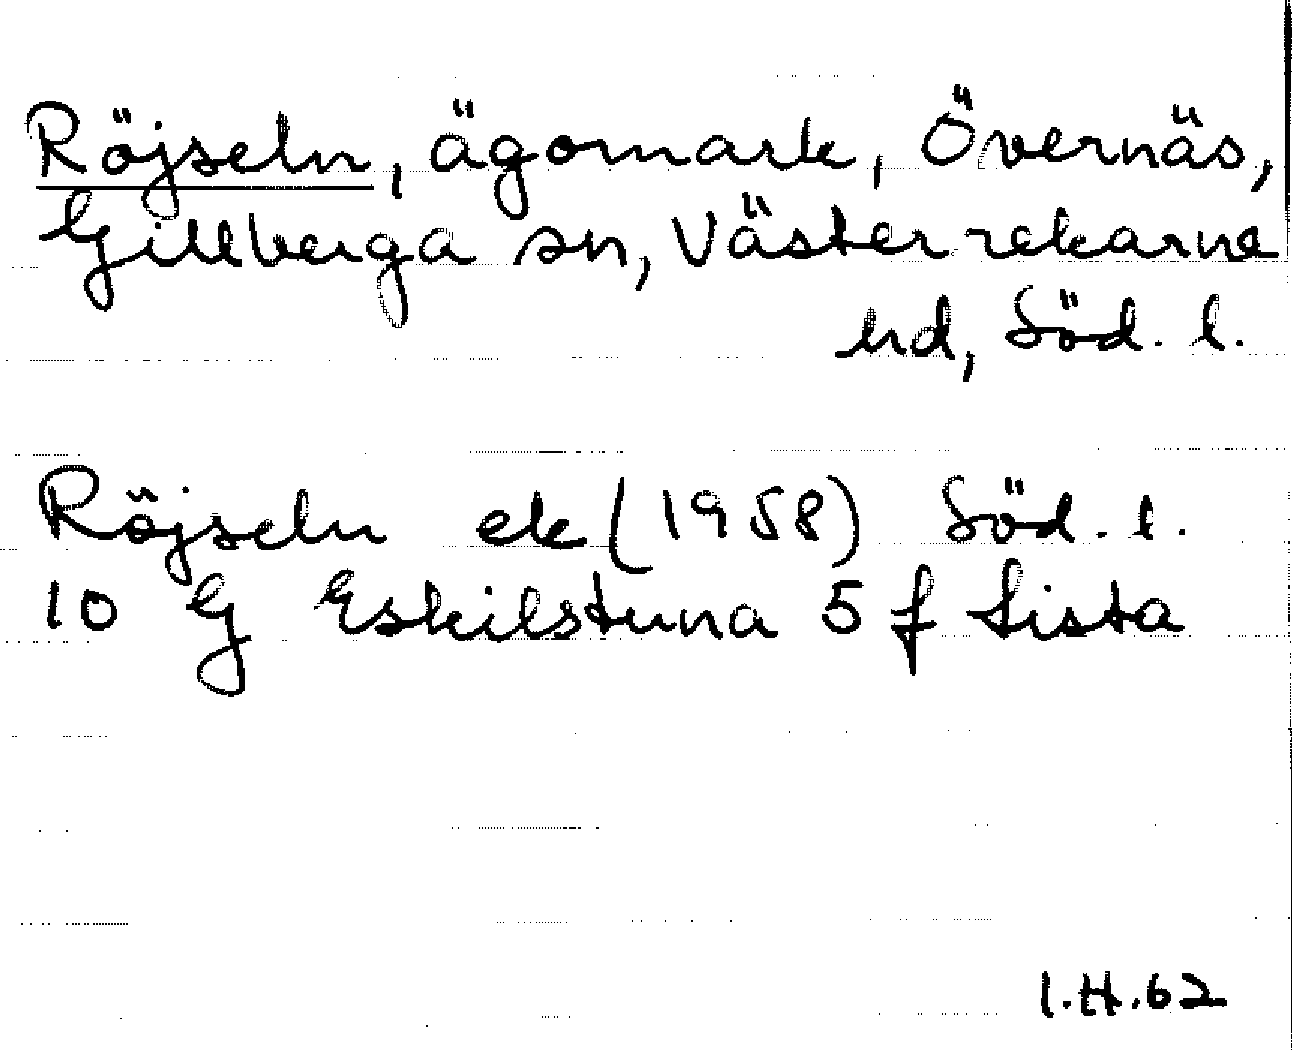 Röjseln, ägomark, Övernäs,
Gillberga sn, Västerrekarne
hd, Söd. l.
Röjseln ek (1958) Söd. l.
10 G Eskilstuna 5 f Lista
I.H.62